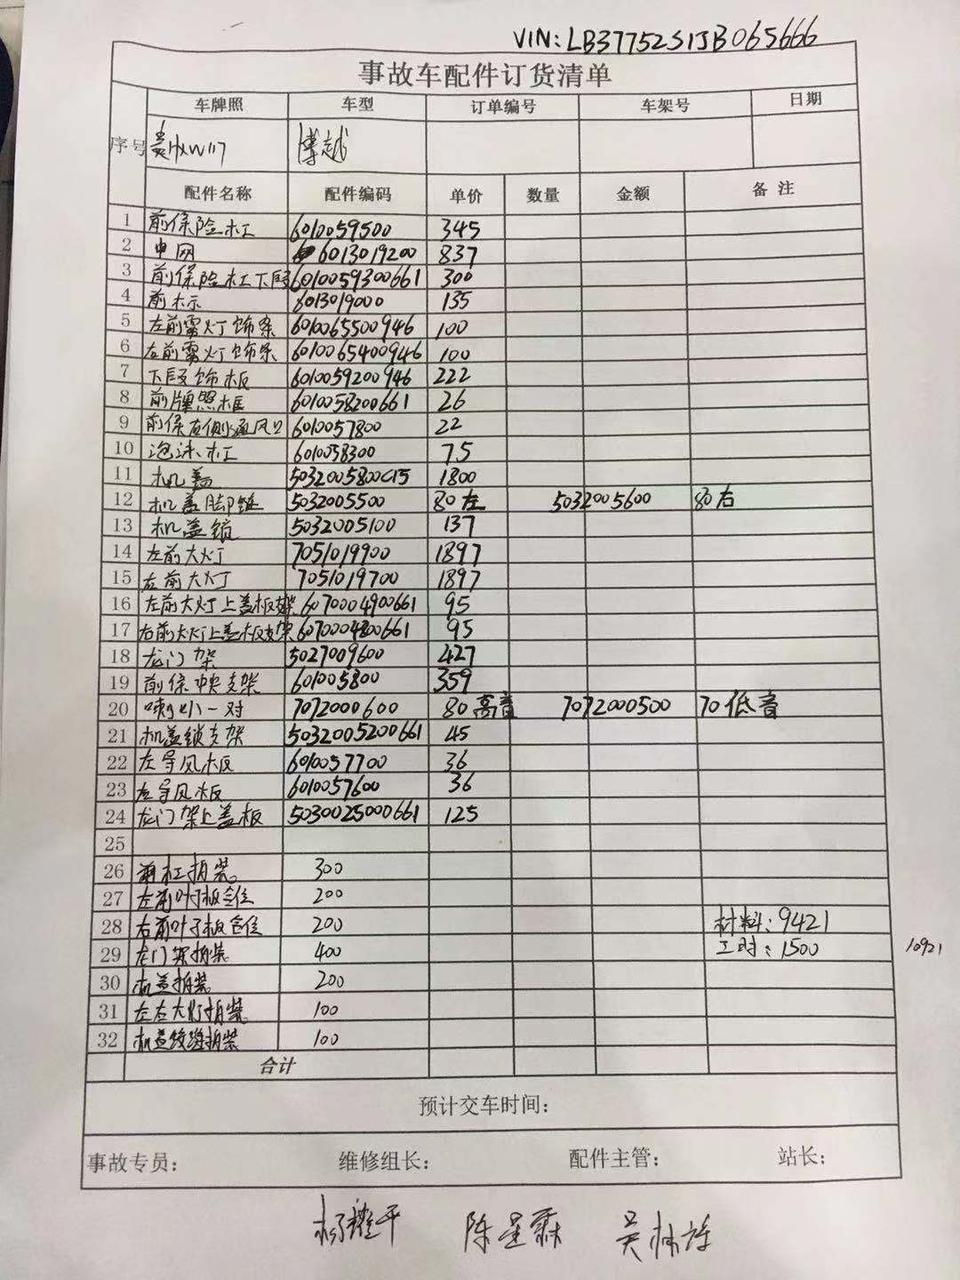 VIN: LB37752S1JB065666
事故车配件订货清单
序号 车牌照 车型 订单编号 车架号 日期
博越
配件名称 配件编码 单价 数量 金额 备 注
1 前保险杠 6010059500 345
2 中网 6013019200 837
3 前保险杠下段 6010059300661 300
4 前标 6013019000 135
5 左前雾灯饰条 6010065500946 100
6 右前雾灯饰条 6010065400946 100
7 下段饰板 6010059200946 222
8 前牌照框 6010058200661 26
9 前保左侧通风口 6010057800 22
10 泡沫杠 6010058300 75
11 机盖 5032005800C15 1800
12 机盖脚链 5032005500 80左 5032005600 80右
13 机盖锁 5032005100 137
14 左前大灯 7051019900 1897
15 右前大灯 7051019700 1897
16 左前大灯上盖板支架 6070004900661 95
17 右前大灯上盖板支架 6070004800661 95
18 龙门架 5027009600 427
19 前保中央支架 601005800 359
20 喇叭一对 7072000600 80高音 7072000500 70低音
21 机盖锁支架 5032005200661 45
22 左导风板 6010057700 36
23 右导风板 6010057600 36
24 龙门架上盖板 5030025000661 125
25
26 前杠拆装 300
27 左前叶子板 200
28 右前叶子板 200 材料:9421
29 龙门架拆装 400 工时:1500 10921
30 机盖拆装 200
31 左右大灯拆装 100
32 机盖铰链拆装 100
合计
预计交车时间:
事故专员: 维修组长: 配件主管: 站长: